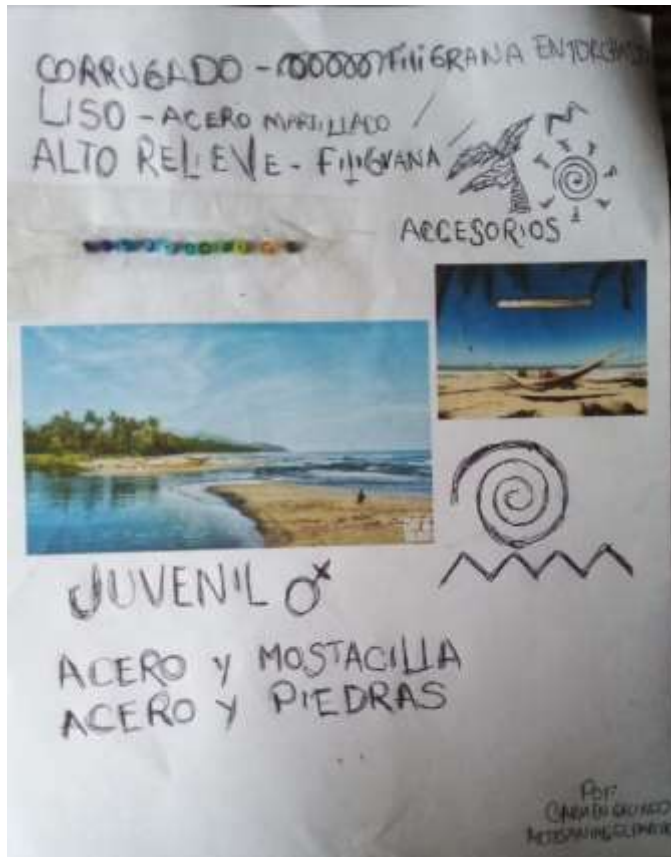 CORRUGADO - FILIGRANA ENTORCHADO
LISO - ACERO MARTILLADO
ALTO RELIEVE - FILIGRANA
ACCESORIOS
JUVENIL
ACERO Y MOSTACILLA
ACERO Y PIEDRAS
POR:
CARMEN